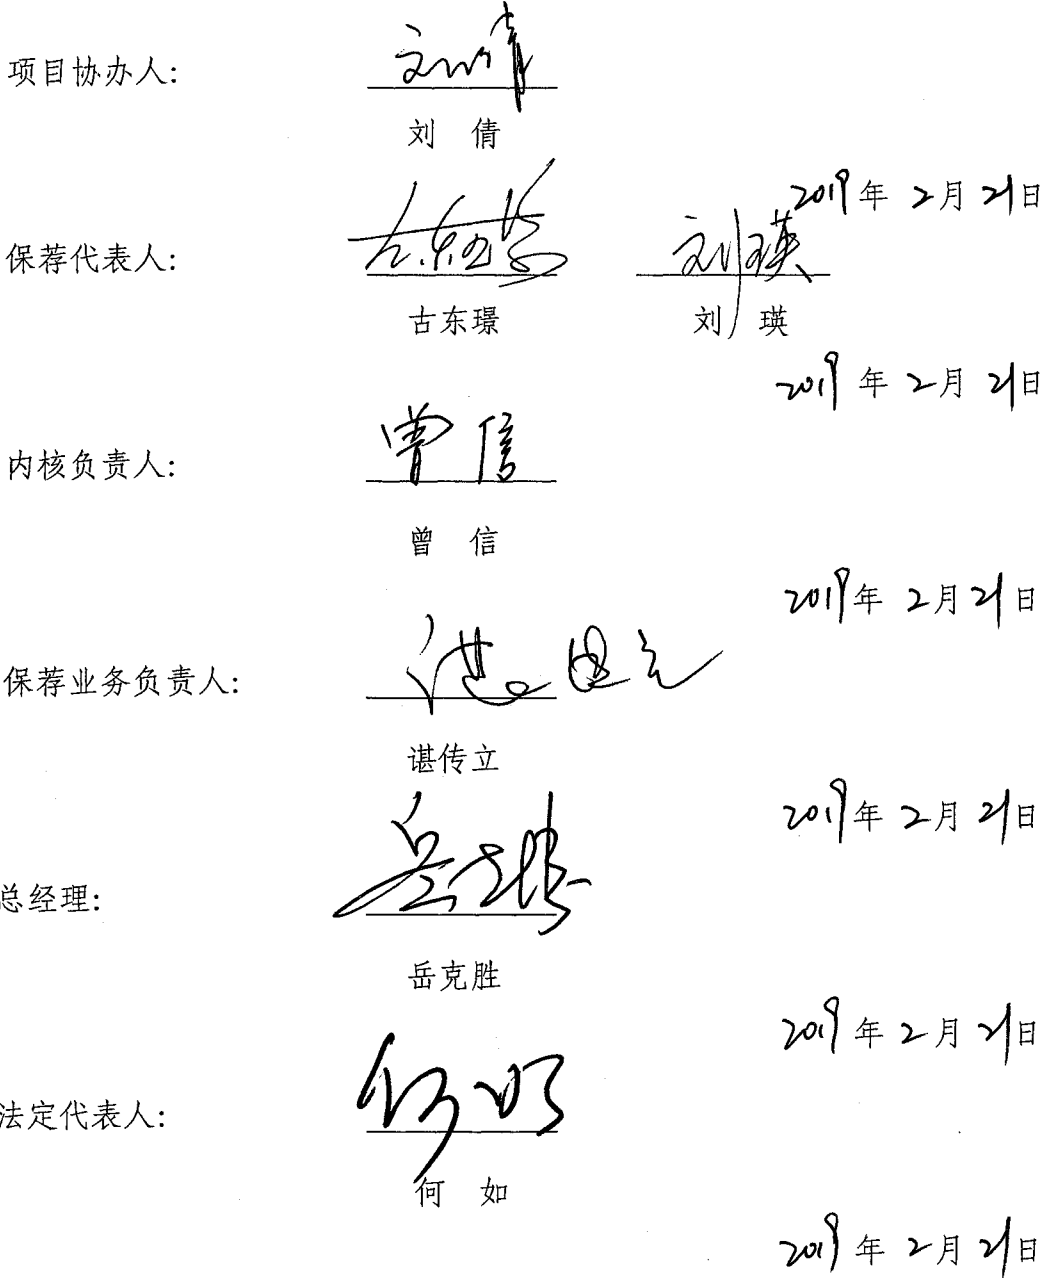 项目协办人: 刘倩
刘 倩
2019年 2月 21日
保荐代表人: 古东璟 刘瑛
古东璟 刘 瑛
2019年 2月 21日
内核负责人: 曾信
曾 信
2019年 2月 21日
保荐业务负责人: 谌传立
谌传立
2019年 2月 21日
总经理: 岳克胜
岳克胜
2019年 2月 21日
法定代表人: 何如
何 如
2019年 2月 21日